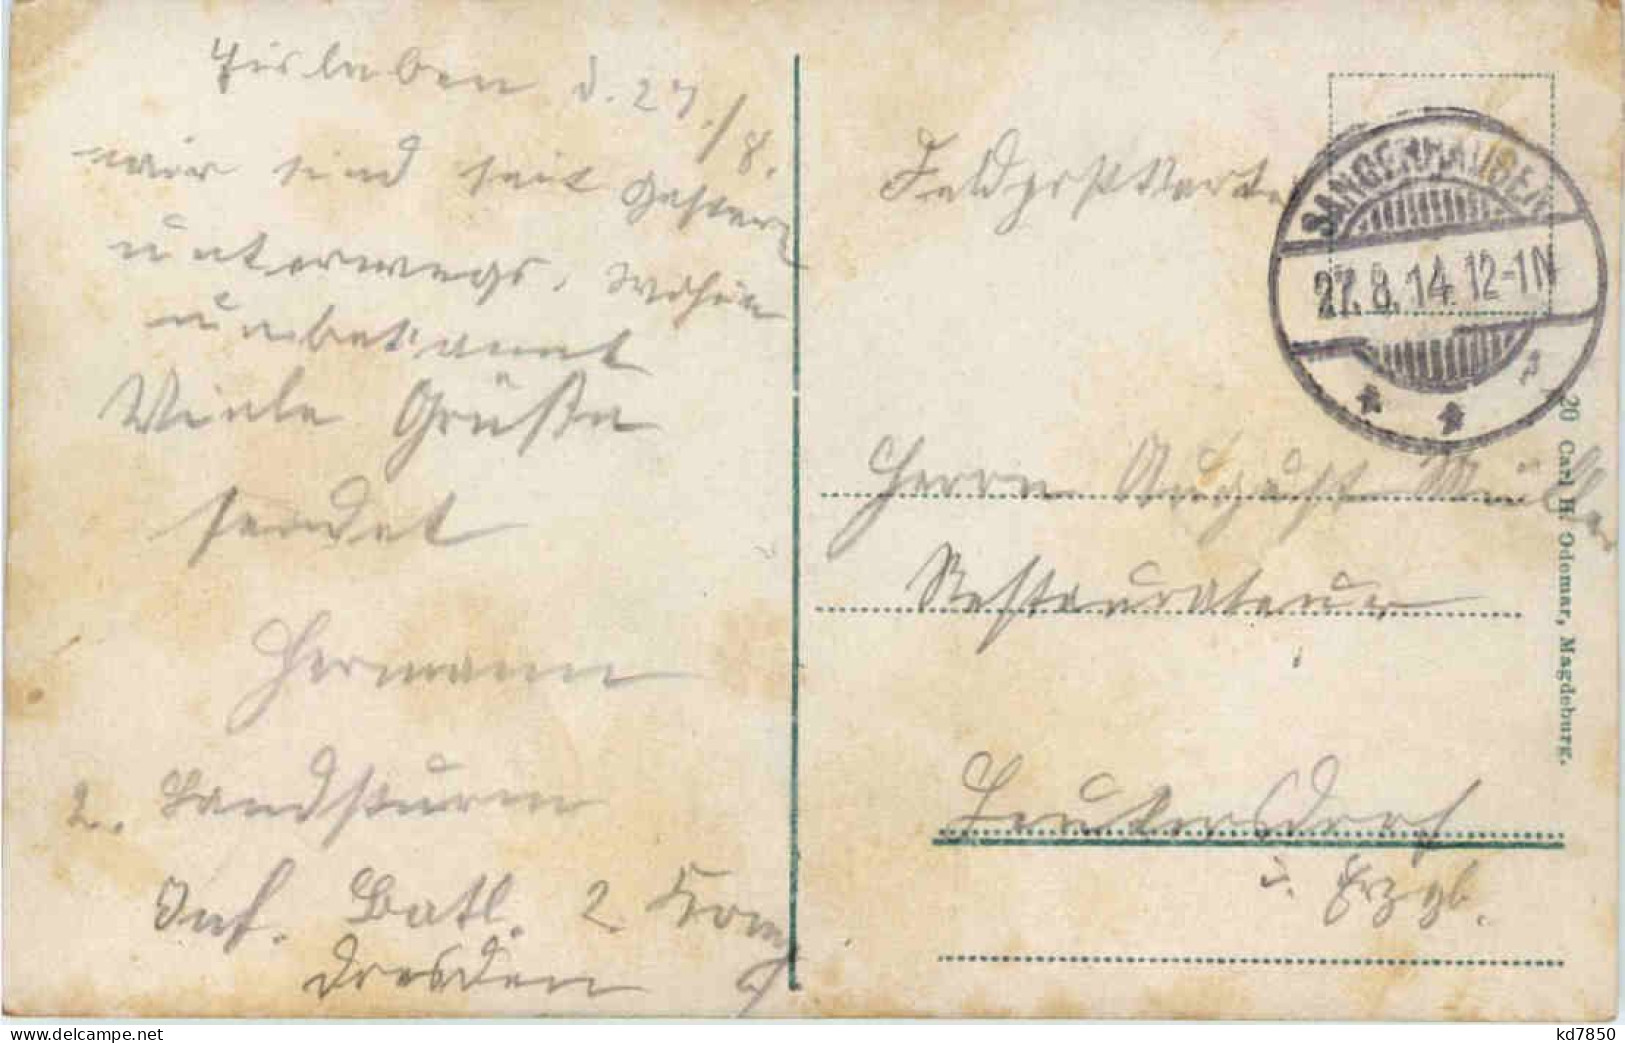 Eisleben d. 27./8.
wir sind seit gestern
unterwegs, wohin
unbekannt
Viele Grüße
sendet
Hermann
2. Landsturm
Inf. Batl. 2. Komp
Dresden
Feldpostkarte
SANGERHAUSEN
27.8.14. 12-1N
Herrn August Müller
Restaurateur
Leukersdorf
i. Erzgb.
20 Carl H. Odemar, Magdeburg.
kd7850